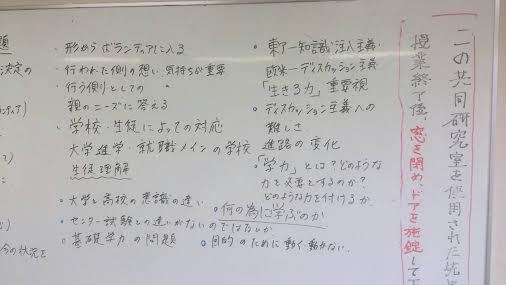 題
決定の
今の状況を
・形からボランティアに入る
・行われた側の想い、気持ちが重要
・行う側としての
親のニーズに答える
・学校・生徒によっての対応
大学進学・就職メインの学校
生徒理解
・大学と高校の意識の違い
・センター試験との違いがないのではないか
・基礎学力の問題
・東アー知識注入主義
欧米ーディスカッション主義
「生きる力」重要視
・ディスカッション主義への
難しさ
進路の変化
・「学力」とは?どのような
力を必要とするのか?
どのような力を付けるか
・何の為に学ぶのか
・目的のために動く動かない。
この共同研究室を使用された
授業終了後、窓を閉め、ドアを施錠して下